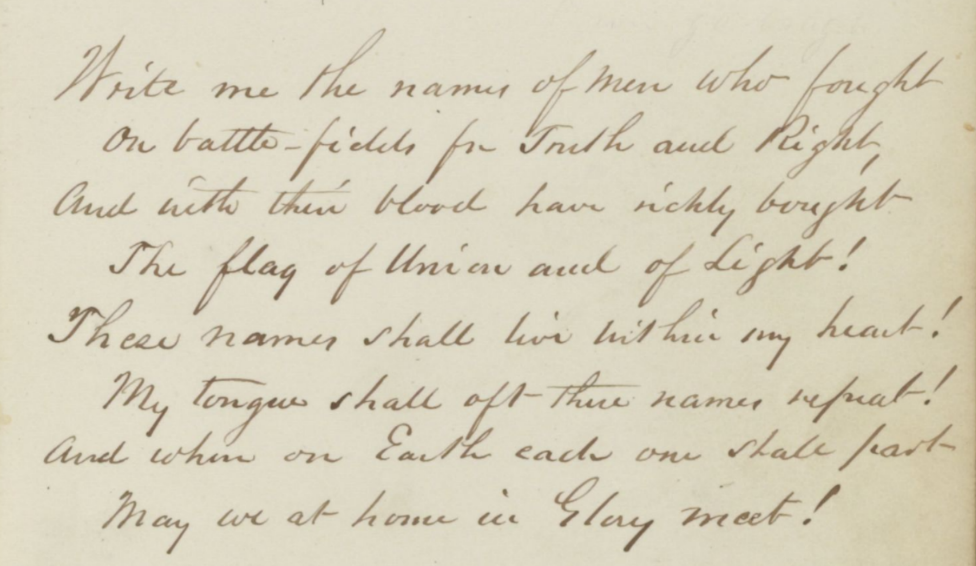 Write me the names of men who fought
On battle-fields for Truth and Right,
And with their blood have richly bought
The flag of Union and of Light!
These names shall live within my heart!
My tongue shall oft these names repeat!
And when on Earth each one shall part
May we at home in Glory meet!